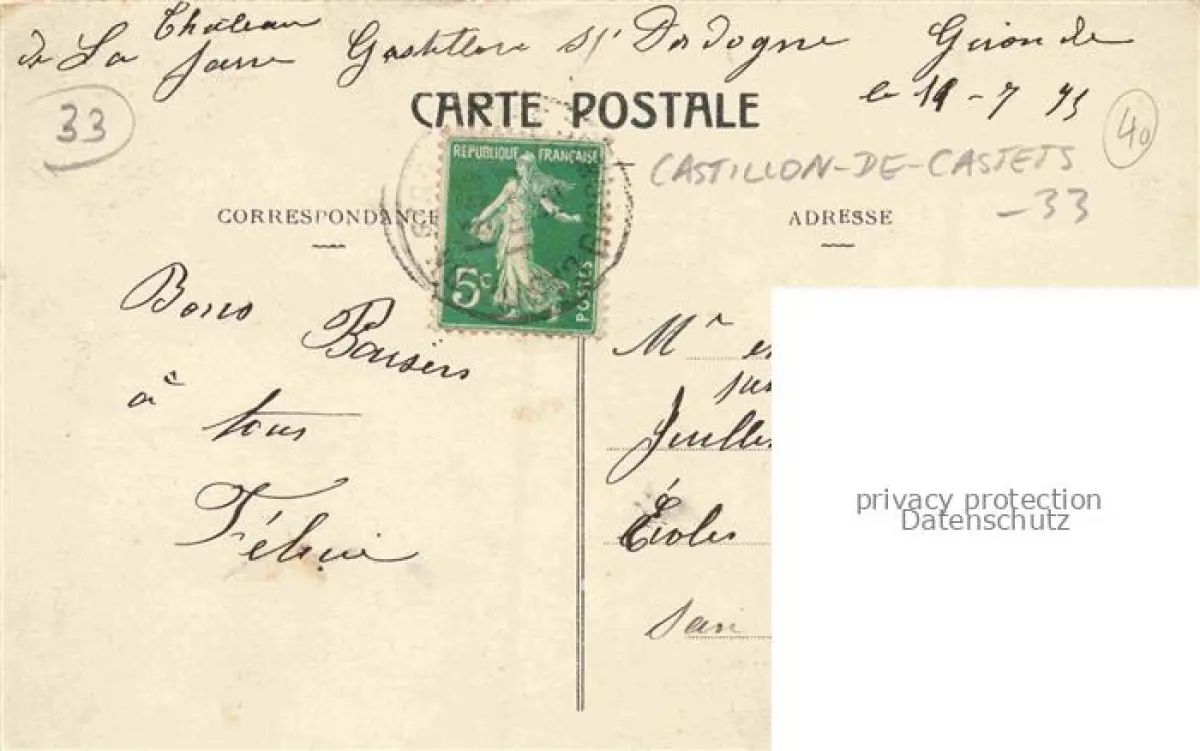 Château
de La
Castillon s/ Dordogne Gironde
le 11 - 7
33
CARTE POSTALE
40
REPUBLIQUE FRANÇAISE
5c
POSTES
CASTILLON-DE-CASTETS
-33
CORRESPONDANCE
ADRESSE
Bons
Baisers
à
tous
Mr e
Écoles
privacy protection
Datenschutz